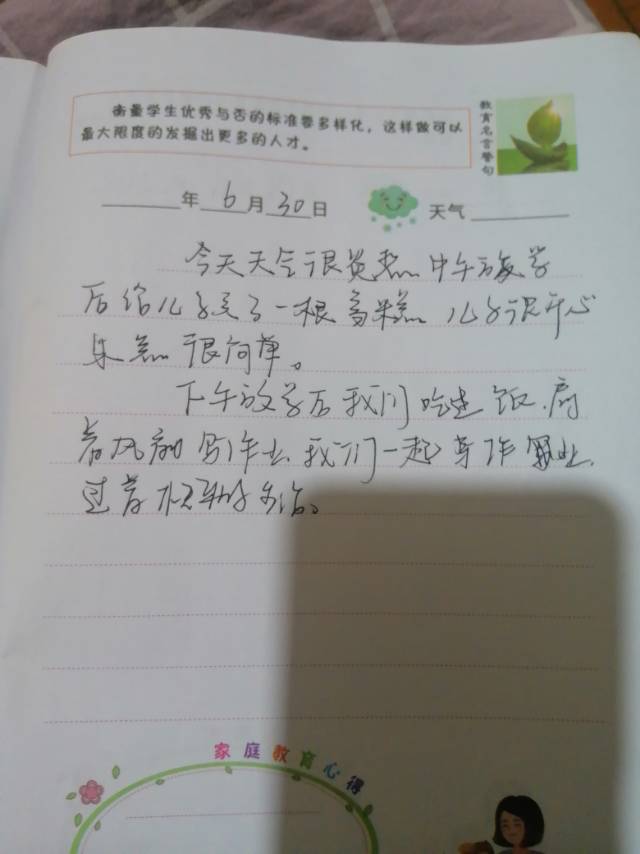 衡量学生优秀与否的标准要多样化，这样做可以
最大限度的发掘出更多的人才。
教育名言警句
年 6 月 30 日 天气
今天天气很炎热 中午放学
后给儿子买了一根雪糕 儿子很开心
很简单。
下午放学后我们吃过饭.扇
着风扇写作业.我们一起写作业.
过着
家庭教育心得